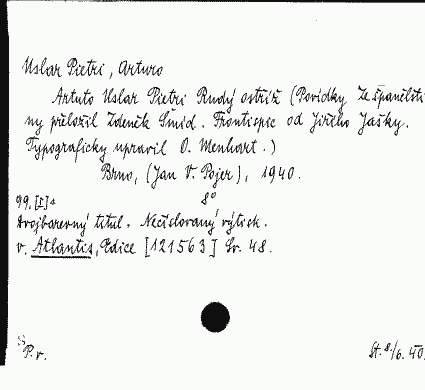 Uslar Pietri, Arturo
Artuto Uslar Pietri Rudý ostříž (Povídky Ze španělšti
ny přeložil Zdeněk Šmíd. Frontispic od Jiřího Jašky.
Typograficky upravil O. Menhart.)
Brno, (Jan V. Pojer), 1940.
99, [I] s 8°
Dvojbarevný titul. Nečíslovaný výtisk.
v. Atlantis, Edice [121563] Sv. 48.
P. v. St. 8./6. 40.